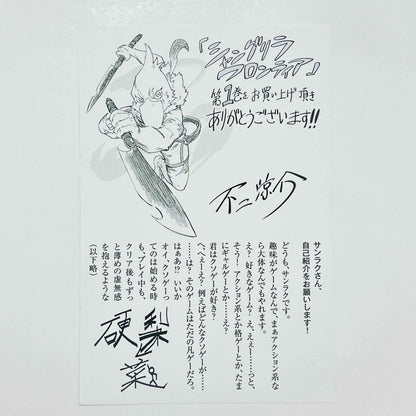 「シャングリラ
フロンティア」
第1巻をお買い上げ頂き
ありがとうございます!!
不二涼介
サンラクさん、
自己紹介をお願いします!
どうも、サンラクです。
趣味がゲームなんで、まぁアクション系な
ら大体なんでもやれます。
え? 好きなゲーム? え、えぇー……っと、
そうー! アクション系とか格ゲーとか、たま
にギャルゲーとか……え?
君はクソゲーが好き?
へ、へぇーえ? 例えばどんなクソゲーが……
……は? そのゲームはただの凡ゲーだろ。
はぁあ!? いいか
オイ、クソゲーっ
てのは始める時
も、プレイ中も、
クリア後もずっ
と薄めの虚無感
を抱えるような
(以下略)
硬梨菜